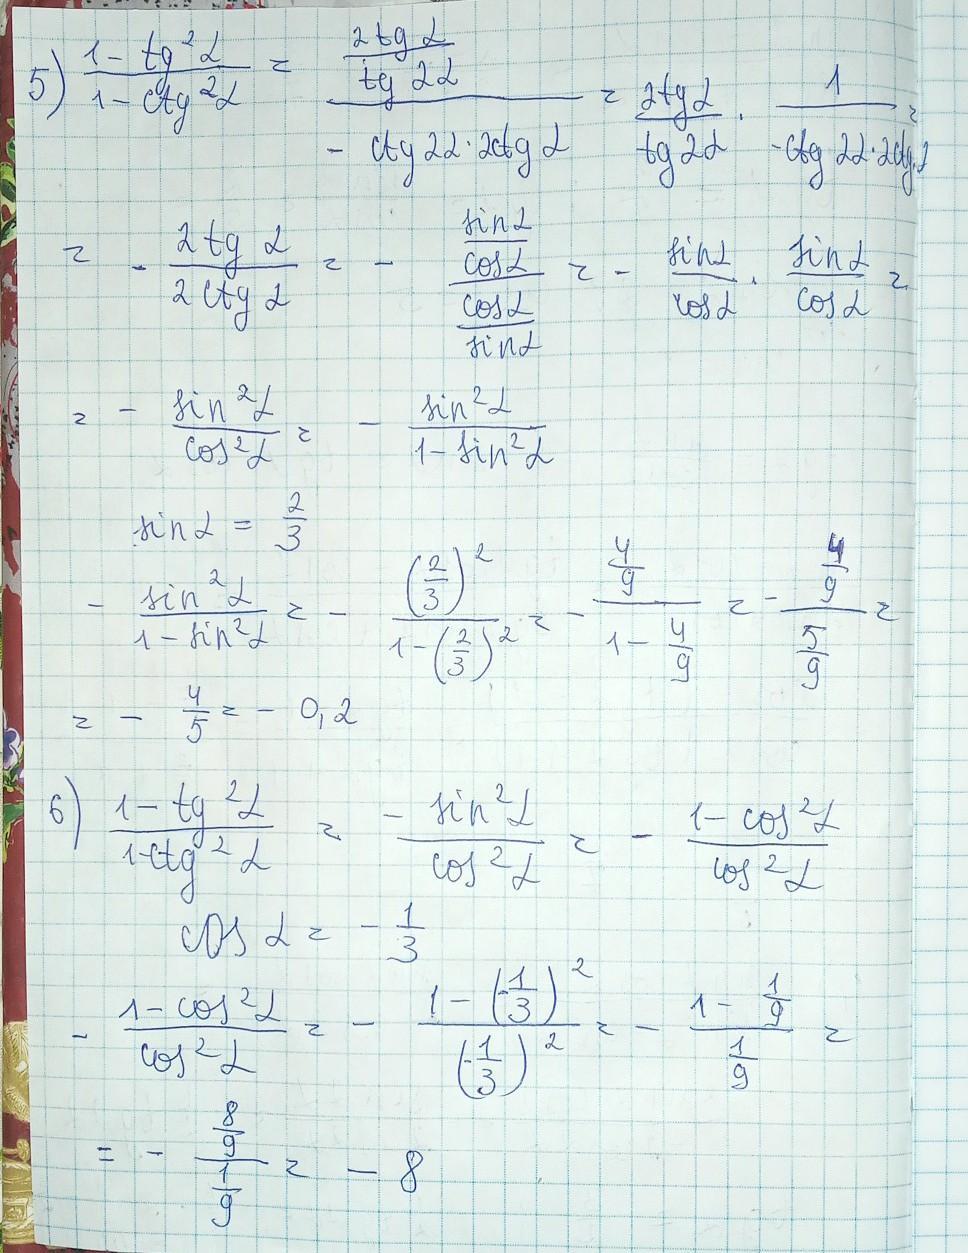 5) (1 - tg²α)/(1 - ctg²α) = ((2tgα)/(tg2α))/(- ctg2α·2ctgα) = (2tgα)/(tg2α) · 1/(-ctg2α·2ctgα) =
= - (2tgα)/(2ctgα) = - (sinα/cosα)/(cosα/sinα) = - sinα/cosα · sinα/cosα =
= - sin²α/cos²α = - sin²α/(1 - sin²α)
sinα = 2/3
- sin²α/(1 - sin²α) = - (2/3)²/(1 - (2/3)²) = - (4/9)/(1 - 4/9) = - (4/9)/(5/9) =
= - 4/5 = - 0,2
6) (1 - tg²α)/(1-ctg²α) = (- sin²α)/(cos²α) = - (1 - cos²α)/(cos²α)
cosα = - 1/3
- (1 - cos²α)/(cos²α) = - (1 - (-1/3)²)/((-1/3)²) = - (1 - 1/9)/(1/9) =
= - (8/9)/(1/9) = - 8